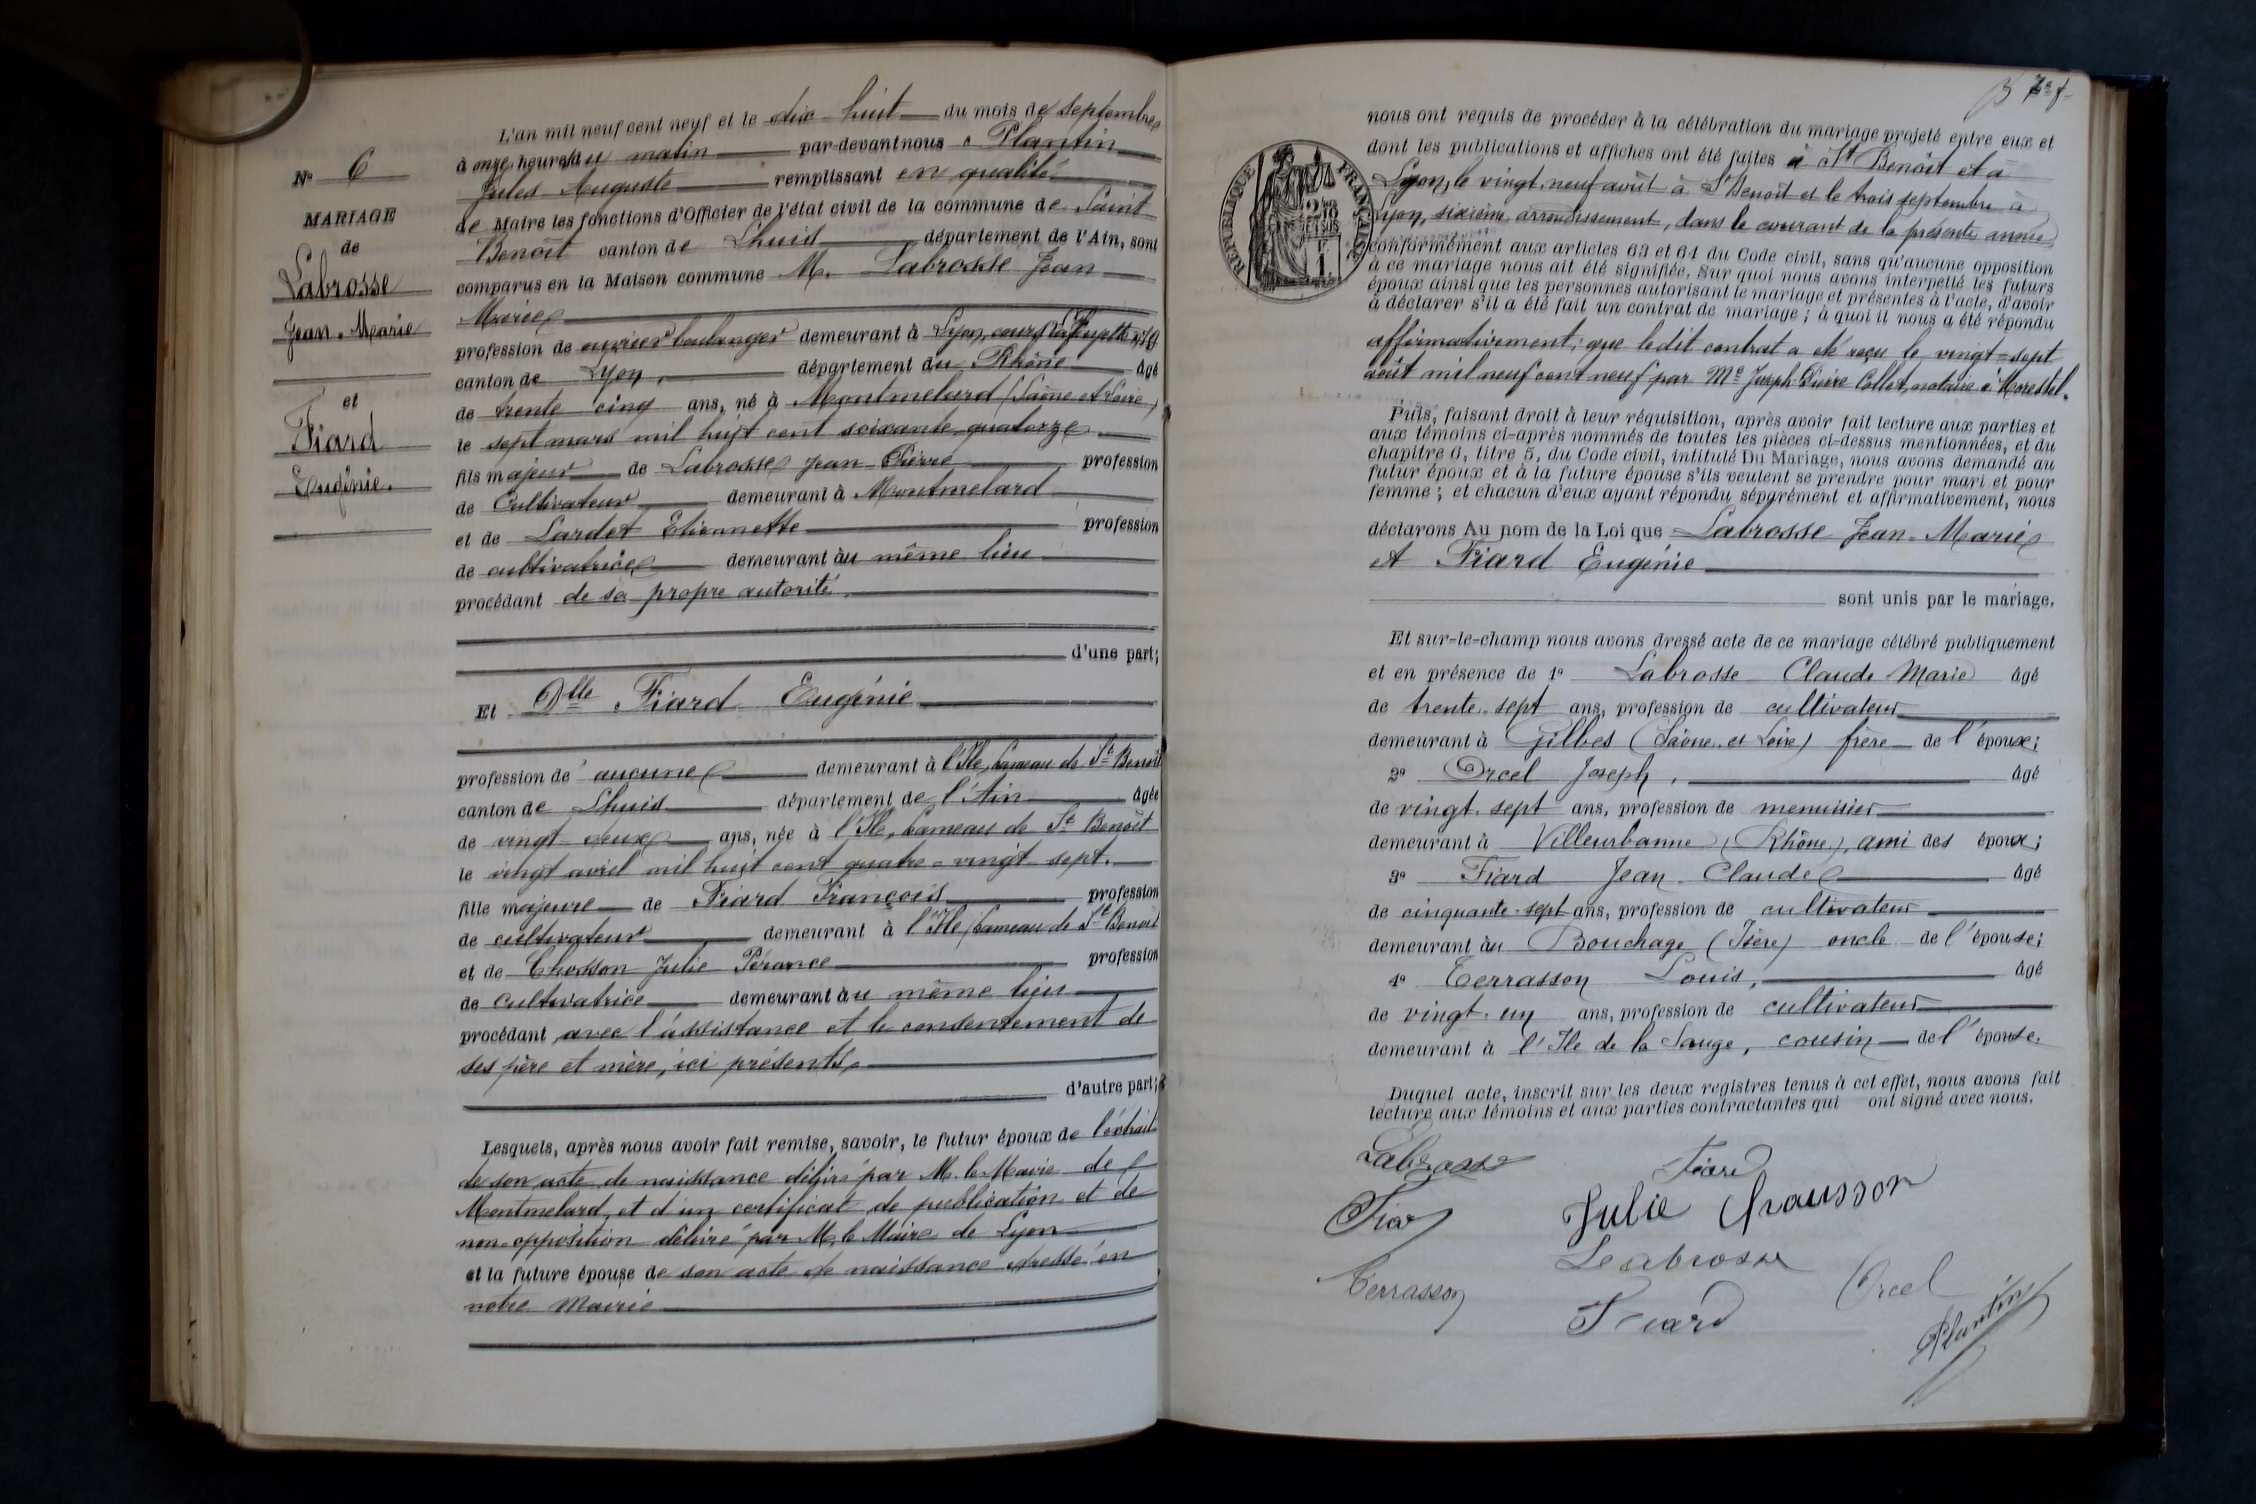 N° 6
MARIAGE
de
Labrosse
Jean-Marie
et
Fiard
Eugénie.
L'an mil neuf cent neuf et le dix huit du mois de septembre
à onze heures du matin par-devant nous Plantin
Jules Auguste remplissant en qualité
de Maire les fonctions d'Officier de l'état civil de la commune de Saint
Benoît canton de Lhuis département de l'Ain, sont
comparus en la Maison commune M. Labrosse Jean
Marie
profession de ouvrier boulanger demeurant à Lyon, cours
canton de Lyon, département du Rhône âgé
de trente cinq ans, né à Montmelard (Saône et Loire)
le sept mars mil huit cent soixante quatorze
fils majeur de Labrosse Jean-Pierre profession
de Cultivateur demeurant à Montmelard
et de Lardet Etiennette profession
de cultivatrice demeurant au même lieu
procédant de sa propre autorité
d'une part;
Et Dlle Fiard Eugénie
profession de aucune demeurant à l'Ile, hameau de St Benoît
canton de Lhuis département de l'Ain âgée
de vingt deux ans, née à l'Ile, hameau de St Benoît
le vingt avril mil huit cent quatre-vingt sept.
fille majeure de Fiard François profession
de cultivateur demeurant à l'Ile, hameau de St Benoît
et de Chosson Julie Pérance profession
de cultivatrice demeurant au même lieu
procédant avec l'assistance et le consentement de
ses père et mère, ici présents,
d'autre part;
Lesquels, après nous avoir fait remise, savoir, le futur époux de l'extrait
de son acte de naissance délivré par M. le Maire de
Montmelard, et d'un certificat de publication et de
non-opposition délivré par M. le Maire de Lyon
et la future épouse de son acte de naissance dressé en
notre Mairie
nous ont requis de procéder à la célébration du mariage projeté entre eux et
dont les publications et affiches ont été faites à St Benoît et à
Lyon, le vingt-neuf août à St Benoît et le trois septembre à
Lyon, sixième arrondissement, dans le courant de la présente année
conformément aux articles 63 et 64 du Code civil, sans qu'aucune opposition
à ce mariage nous ait été signifiée. Sur quoi nous avons interpellé les futurs
époux ainsi que les personnes autorisant le mariage et présentes à l'acte, d'avoir
à déclarer s'il a été fait un contrat de mariage; à quoi il nous a été répondu
affirmativement; que ledit contrat a été reçu le vingt-sept
août mil neuf cent neuf par Me Joseph Pierre Collet, notaire à Morestel.
Puis, faisant droit à leur réquisition, après avoir fait lecture aux parties et
aux témoins ci-après nommés de toutes les pièces ci-dessus mentionnées, et du
chapitre 6, titre 5, du Code civil, intitulé Du Mariage, nous avons demandé au
futur époux et à la future épouse s'ils veulent se prendre pour mari et pour
femme; et chacun d'eux ayant répondu séparément et affirmativement, nous
déclarons Au nom de la Loi que Labrosse Jean-Marie
et Fiard Eugénie
sont unis par le mariage.
Et sur-le-champ nous avons dressé acte de ce mariage célébré publiquement
et en présence de 1° Labrosse Claude Marie âgé
de trente-sept ans, profession de cultivateur
demeurant à Gilbes (Saône-et Loire) frère de l'époux;
2° Orcel Joseph, âgé
de vingt-sept ans, profession de menuisier
demeurant à Villeurbanne (Rhône), ami des époux;
3° Fiard Jean-Claude âgé
de cinquante-sept ans, profession de cultivateur
demeurant au Bouchage (Isère) oncle de l'épouse;
4° Terrasson Louis, âgé
de vingt-un ans, profession de cultivateur
demeurant à l'Ile de la Sauge, cousin de l'épouse.
Duquel acte, inscrit sur les deux registres tenus à cet effet, nous avons fait
lecture aux témoins et aux parties contractantes qui ont signé avec nous.
RÉPUBLIQUE FRANÇAISE
Labrosse Fiard
Fiard Julie Chausson
Labrosse
Terrasson Orcel
Fiard Plantin